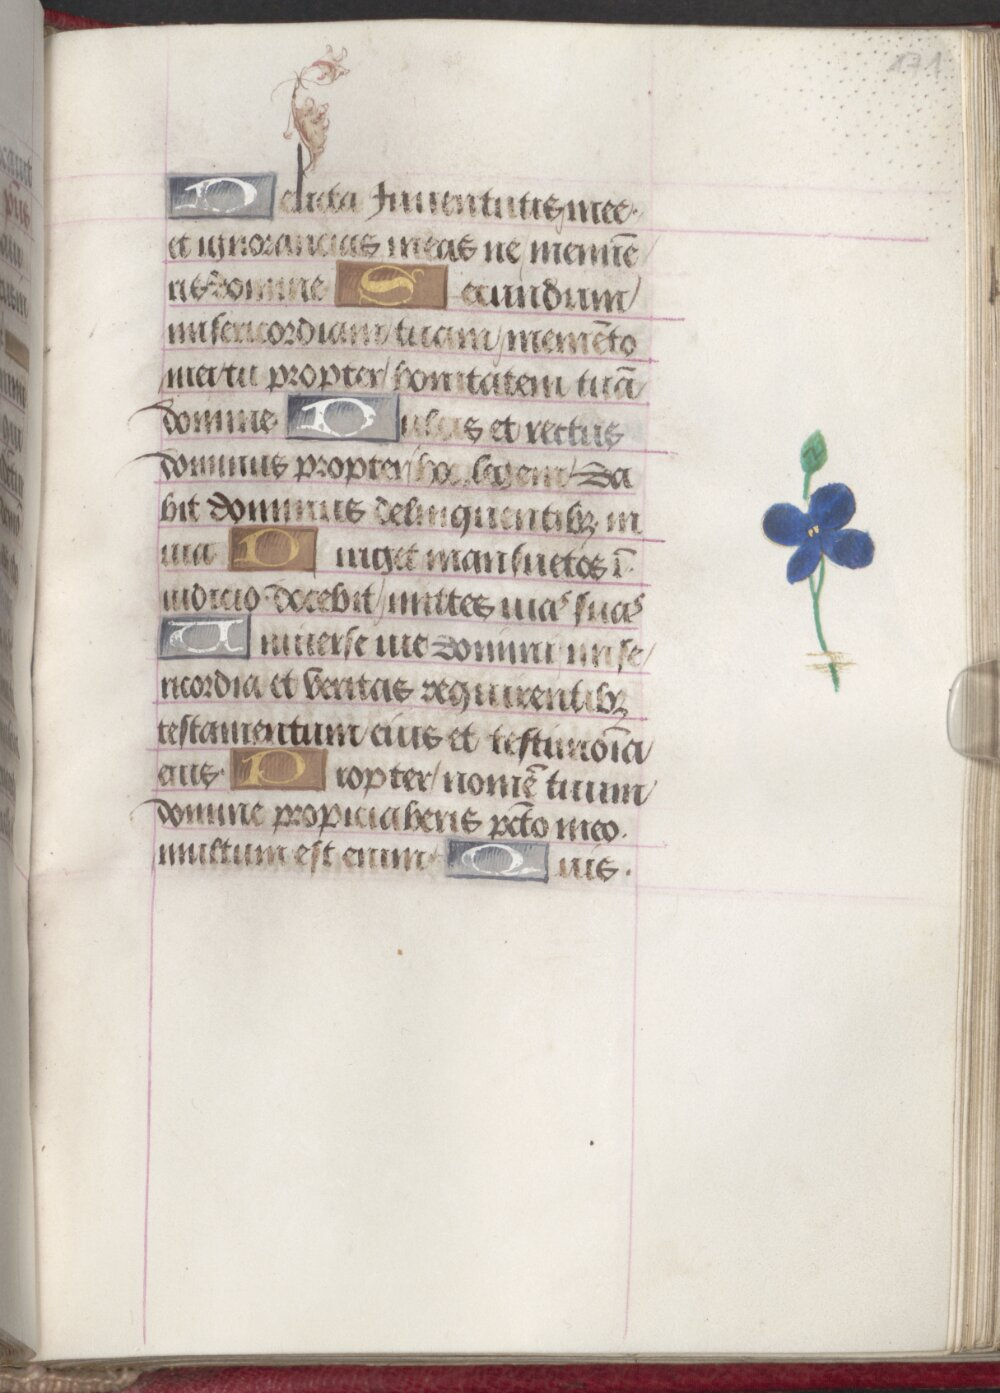 171
Delicta Iuuentutis mee.
et ignorancias meas ne memīe
ris domine Secundum
misericordiam tuam memēto
mei tu propter bonitatem tuā
domine Dulcis et rectus
dominus propter hoc legem Da
bit dominus delinquentibꝫ in
uia Diriget mansuetos ī
iudicio docebit mittes uias suas
Uniuerse uie domini mise
ricordia et veritas requirentibꝫ
testamentum eius et testimoīa
eius Propter nomē tuum
domine propiciaberis pcto meo.
multum est enim Quis.